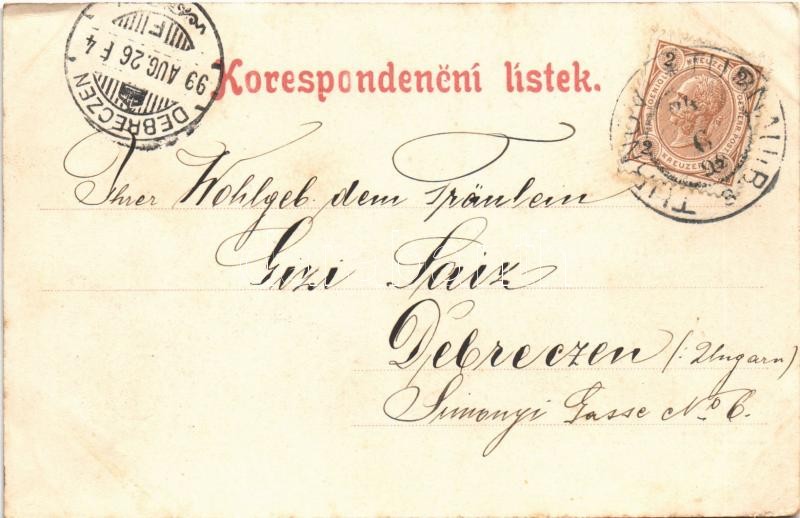 Korespondenční lístek.
DEBRECZEN
99 AUG. 26 F 4
2 KREUZER 2
2 KREUZER
TURNAU
Ihrer Wohlgeb dem Fräulein
Gizi Saiz
Debreczen (: Ungarn)
Simonyi Gasse No 6.